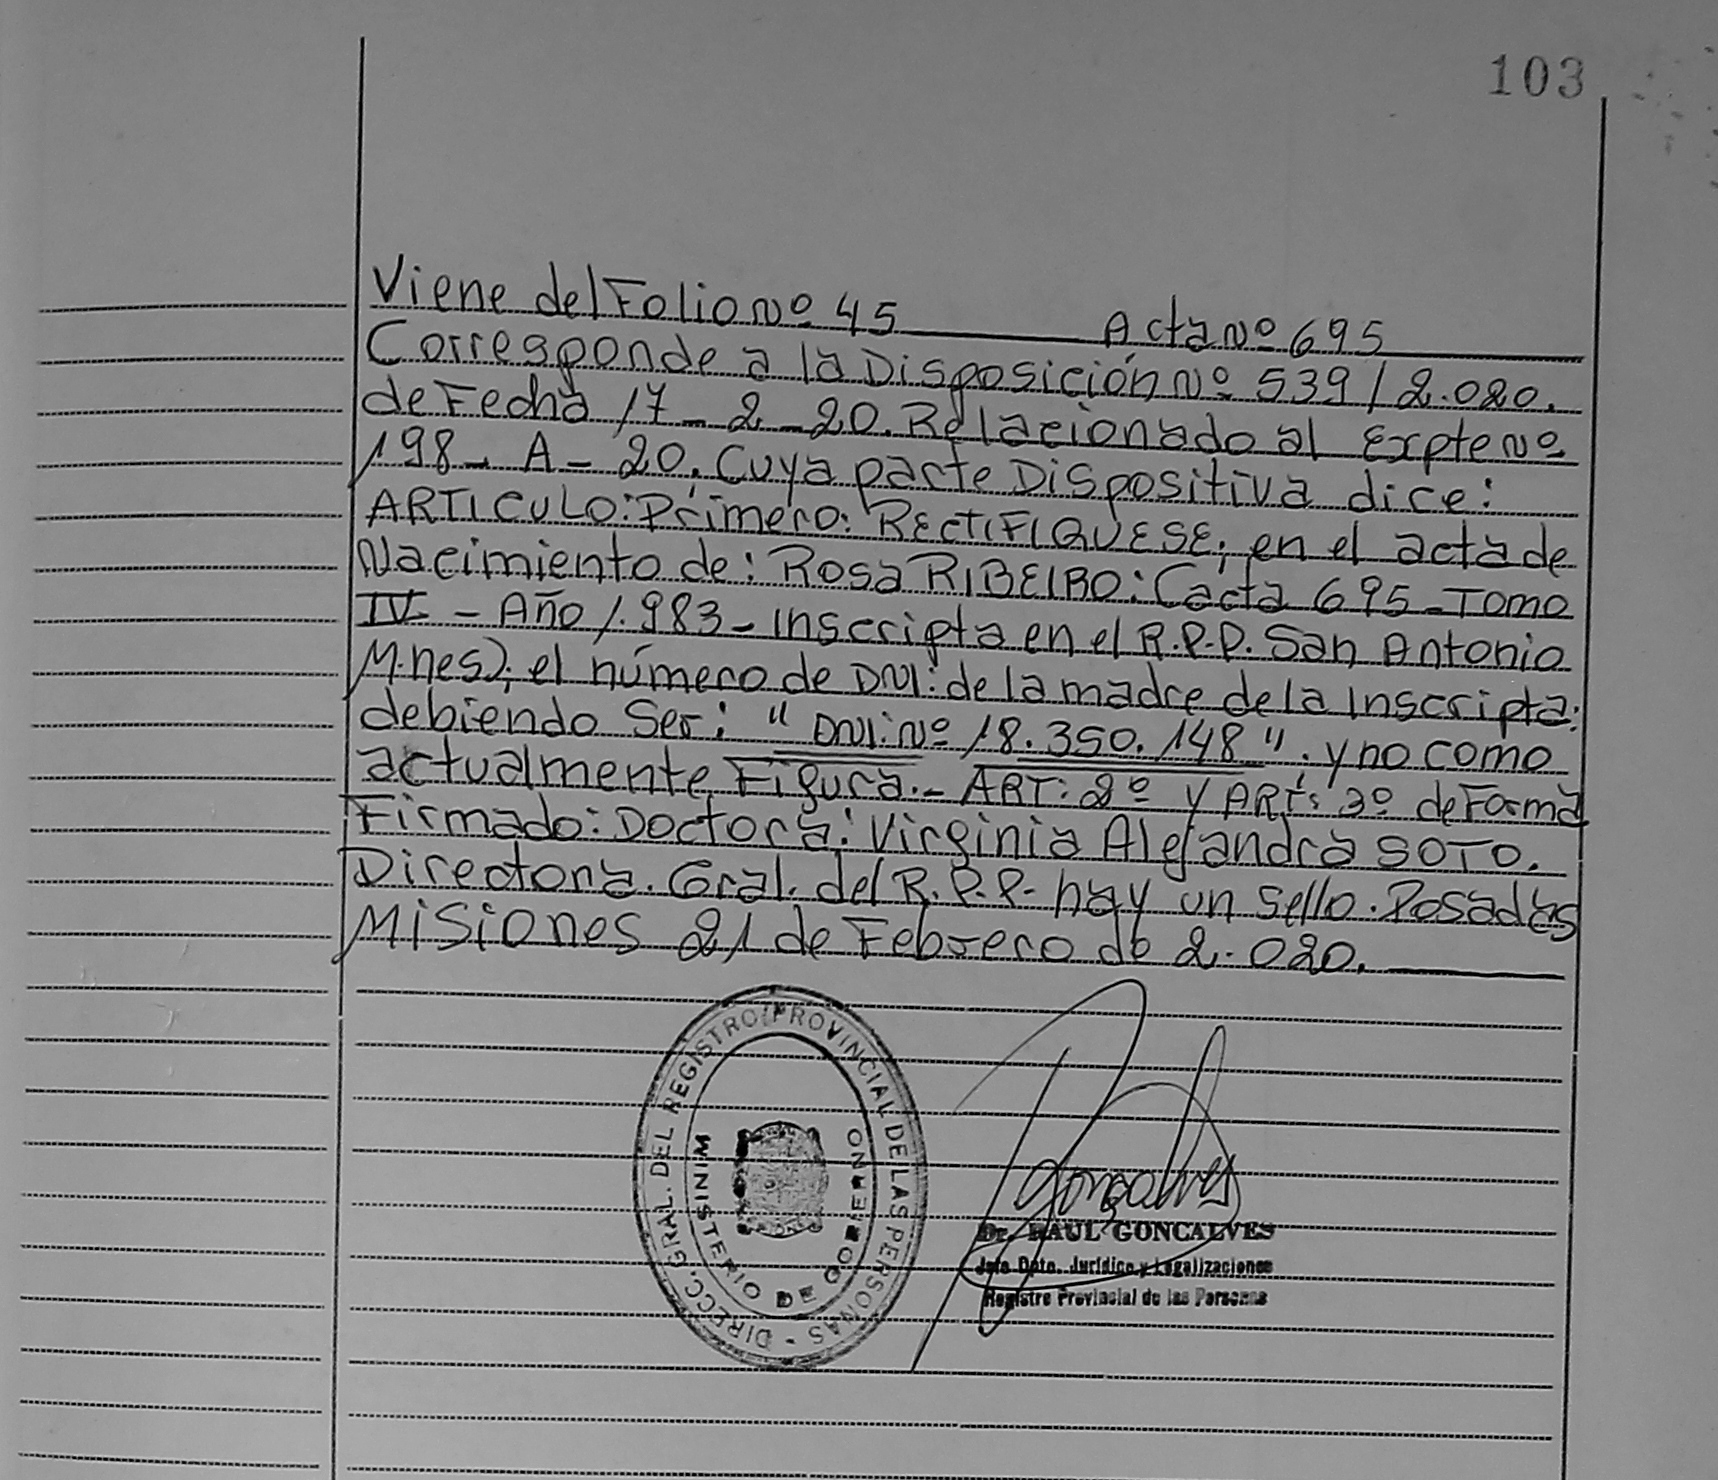 103
Viene del Folio Nº 45 Acta Nº 695
Corresponde a la Disposición Nº 539/2.020.
de Fecha 17-2-20. Relacionado al Expte Nº
198-A-20. Cuya parte Dispositiva dice:
ARTICULO: Primero: RECTIFIQUESE, en el acta de
Nacimiento de: Rosa RIBEIRO: (acta 695-Tomo
IV - Año 1.983- Inscripta en el R.P.P. San Antonio
M.nes), el número de DNI: de la madre de la Inscripta:
debiendo Ser: "DNI: Nº 18.350.148". y no como
actualmente Figura.- ART: 2º y ART: 3º de Forma
Firmado: Doctora: Virginia Alejandra SOTO.
Directora. Gral. del R.P.P. hay un sello. Posadas
Misiones 21 de Febrero de 2.020.
DIRECC. GRAL. DEL REGISTRO PROVINCIAL DE LAS PERSONAS -
MINISTERIO DE GOBIERNO
Gonçalves
Dr. RAUL GONCALVES
Jefe Dpto. Jurídico y Legalizaciones
Registro Provincial de las Personas